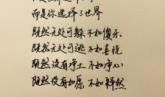 而是你选择了世界
既然无处可躲 不如傻乐
既然无处可逃 不如喜悦
既然没有净土 不如净心
既然没有如愿 不如释然